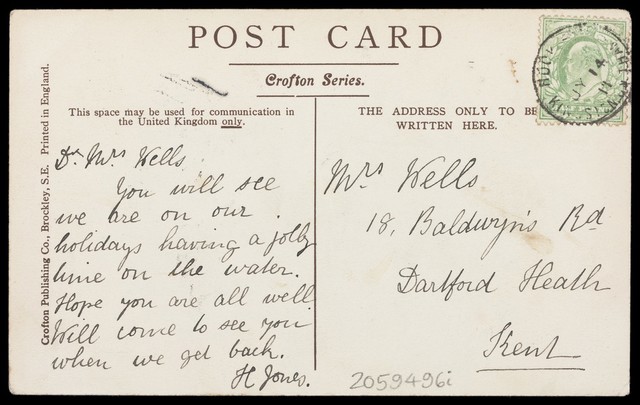 POST CARD
Crofton Series.
This space may be used for communication in
the United Kingdom only.
THE ADDRESS ONLY TO BE
WRITTEN HERE.
Crofton Publishing Co., Brockley, S.E. Printed in England.
Dr Mrs Wells
You will see
we are on our
holidays having a jolly
time on the water.
Hope you are all well
Will come to see you
when we get back.
H Jones.
Mrs Wells
18, Baldwyn's Rd
Dartford Heath
Kent
JY 14
11
2059496i